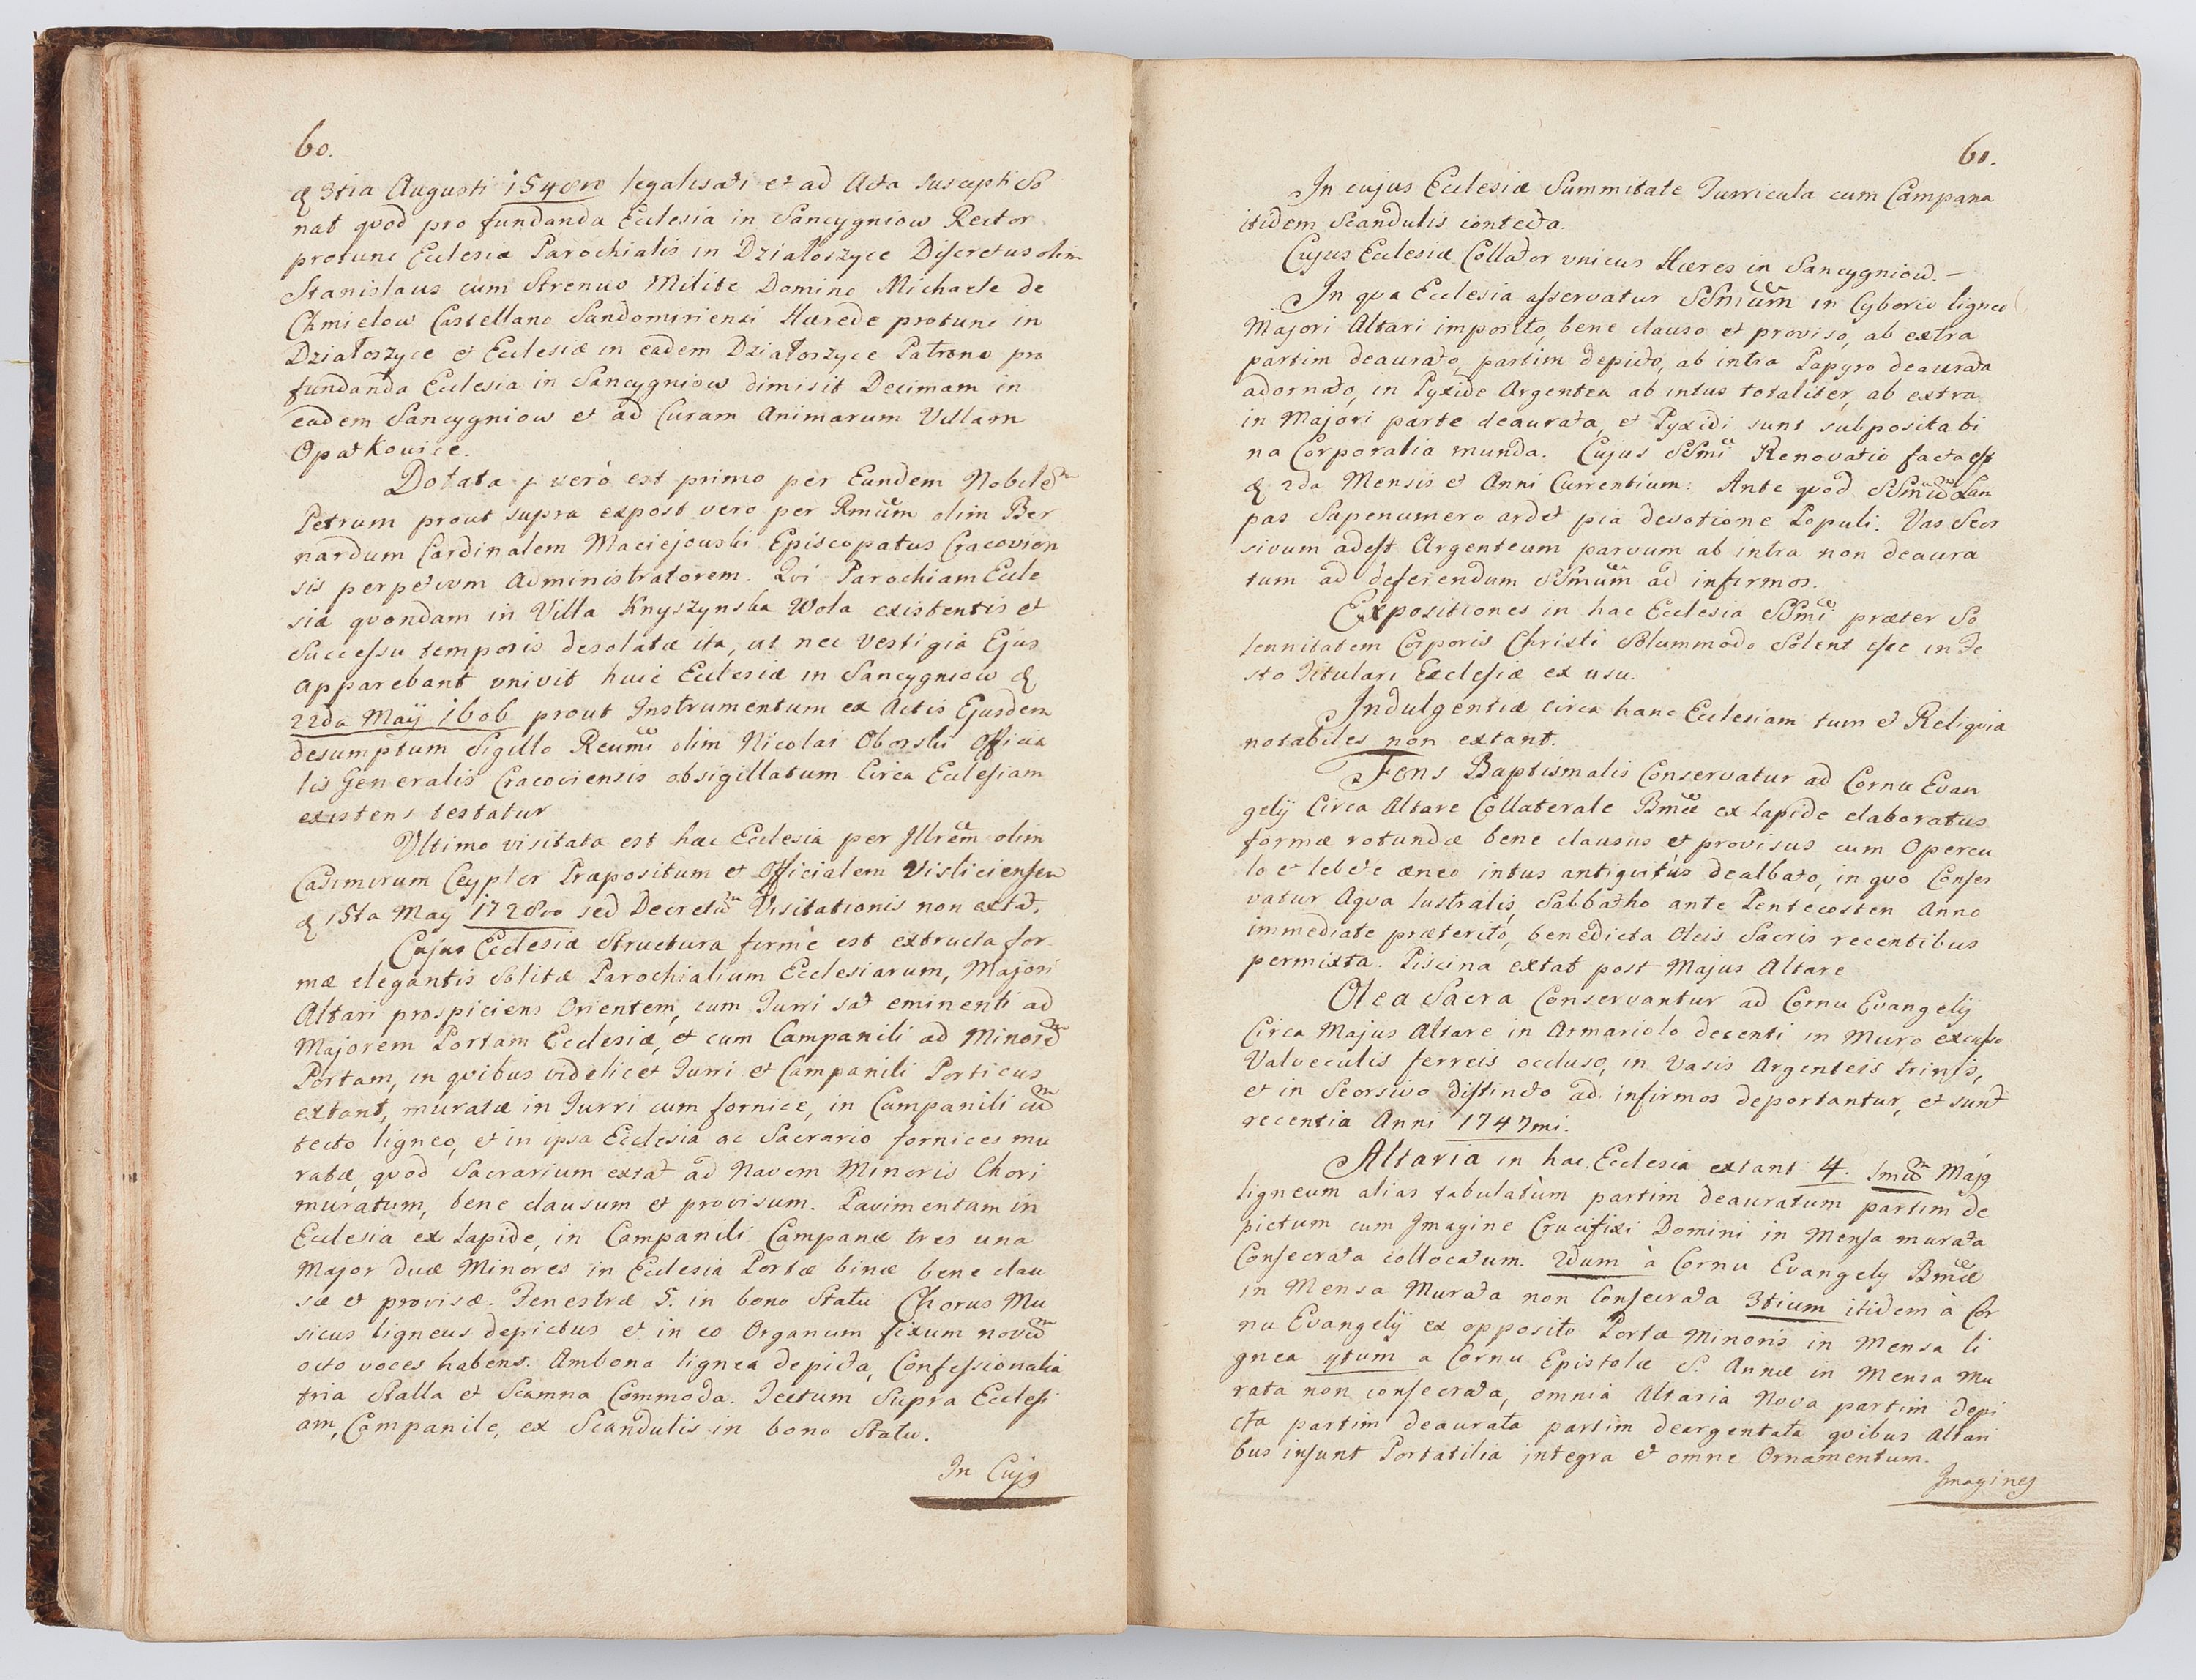 60.
& 3tia Augusti 1540mo legalisati et ad Acta suscepti So
nat qvod pro fundanda Ecclesia in Sancygniow Rector
protunc Ecclesiæ Parochialis in Działoszyce Discretus olim
Stanislaus cum Strenuo Milite Domino Michaele de
Chmielow Castellano Sandomiriensi Hærede protunc in
Działoszyce et Ecclesiæ in eadem Działoszyce Patrono pro
fundanda Ecclesia in Sancygniow dimisit Decimam in
eadem Sancygniow et ad Curam Animarum Villam
Opatkowice.
Dotata verò est primo per Eundem Nobilem
Petrum prout supra expost vero per Rmum olim Ber
nardum Cardinalem Maciejouski Episcopatus Cracovien
sis perpetuum Administratorem. Qvi Parochiam Eccle
siæ qvondam in Villa Knyszynska Wola existentis et
Successu temporis desolatæ ita, ut nec Vestigia Ejus
apparebant vnivit huic Ecclesiæ in Sancygniow &
22da Maÿ 1606 prout Instrumentum ex Actis Ejusdem
desumptum Sigillo Reumi olim Nicolai Oborski Officia
lis Generalis Cracoviensis obsigillatum Circa Ecclesiam
existens testatur
Vltimo visitata est hæc Ecclesia per Jllrem olim
Casimirum Ceypler Præpositum et Officialem Visliciensem
& 15ta May 1728vo sed Decretum Visitationis non extat.
Cujus Ecclesiæ Structura firmè est extructa for
mæ elegantis Solitæ Parochialium Ecclesiarum, Majori
Altari prospiciens Orientem, cum Turri sat eminenti ad
Majorem Portam Ecclesiæ, et cum Campanili ad Minorem
Portam, in qvibus videlicet Turri et Campanili Porticus
extant, muratæ in Turri cum fornice, in Campanili cum
tecto ligneo, et in ipsa Ecclesia ac Sacrario fornices mu
ratæ, qvod Sacrarium extat ad Navem Minoris Chori
muratum, bene clausum et provisum. Pavimentum in
Ecclesia ex Lapide, in Campanili Campanæ tres una
Major duæ Minores in Ecclesia Portæ binæ bene clau
sæ et provisæ. Fenestræ 5. in bono Statu Chorus Mu
sicus ligneus depictus et in eo Organum fixum novum
octo voces habens. Ambona lignea depicta, Confessionalia
tria Stalla et Scamna Commoda. Tectum Supra Ecclesi
am, Campanile, ex Scandulis in bono Statu.
In Cujg
61.
In cujus Ecclesiæ Summitate Turricula cum Campana
itidem Scandulis contecta.
Cujus Ecclesiæ Collator vnicus Hæres in Sancygniow. –
In qva Ecclesia asservatur SSmum in Cyborio ligneo
Majori Altari imposito, bene clauso et proviso, ab extra
partim deaurato, partim depicto, ab intra Papyro deaurata
adornato, in Pyxide Argentea ab intus totaliter, ab extra
in Majori parte deaurata, et Pyxidi sunt subposita bi
na Corporalia munda. Cujus SSmi Renovatio facta est
& 2da Mensis et Anni Currentium. Ante qvod SSmum Lam
pas Sapenumero ardet pia devotione Populi. Vas Seor
sivum adest Argenteum parvum ab intra non deaura
tum ad deferendum SSmum ad infirmos.
Expositiones in hac Ecclesia SSmi præter So
lennitatem Corporis Christi Solummodo Solent esse in Fe
sto Titulari Ecclesiæ ex usu.
Indulgentiæ circa hanc Ecclesiam tum et Reliqviæ
notabiles non extant.
Fons Baptismalis Conservatur ad Cornu Evan
gelij Circa Altare Collaterale Bmæ ex Lapide elaboratus
formæ rotundæ bene clausus et provisus cum Opercu
lo et lebete æneo intus antiqvitùs dealbato, in qvo Conser
vatur Aqva Lustralis, Sabbatho ante Pentecosten Anno
immediate præterito, benedicta Oleis Sacris recentibus
permixta. Piscina extat post Majus Altare
Olea Sacra Conservantur ad Cornu Evangelij
Circa Majus Altare in Armariolo decenti in Muro exculso
Valveculis ferreis occluso, in Vasis Argenteis trinis,
et in Seorsivo distincto ad infirmos deportantur, et sunt
recentia Anni 1747mi.
Altaria in hac Ecclesia extant 4. 1mum Majg
ligneum alias tabulatùm partim deauratum partim de
pictum cum Jmagine Crucifixi Domini in Mensa murata
Consecrata collocatum. 2dum à Cornu Evangely Bmæ
in Mensa Murata non Consecrata 3tium itidem à Cor
nu Evangelij ex opposito Portæ Minoris in Mensa li
gnea 4tum a Cornu Epistolæ S. Annæ in Mensa Mu
rata non consecrata, omnia Altaria Nova partim depi
cta partim deaurata partim deargentata qvibus Altari
bus insunt Portatilia integra et omne Ornamentum.
Jmagines